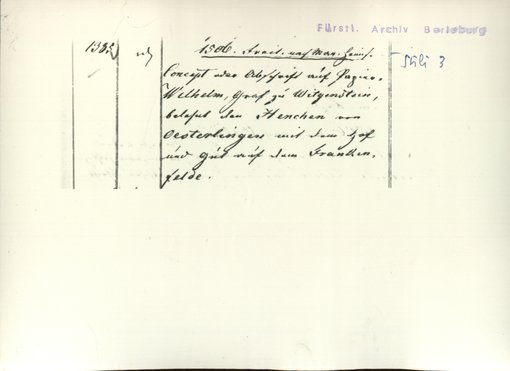 Fürstl. Archiv Berleburg
1506. Freit. nach Mar. Heims.
Concept oder Abschrift auf Papier.
Wilhelm, Graf zu Witgenstein,
belehnt den Henchen von
Oesterlingen mit dem Hof
und gut auf dem Franken-
felde.